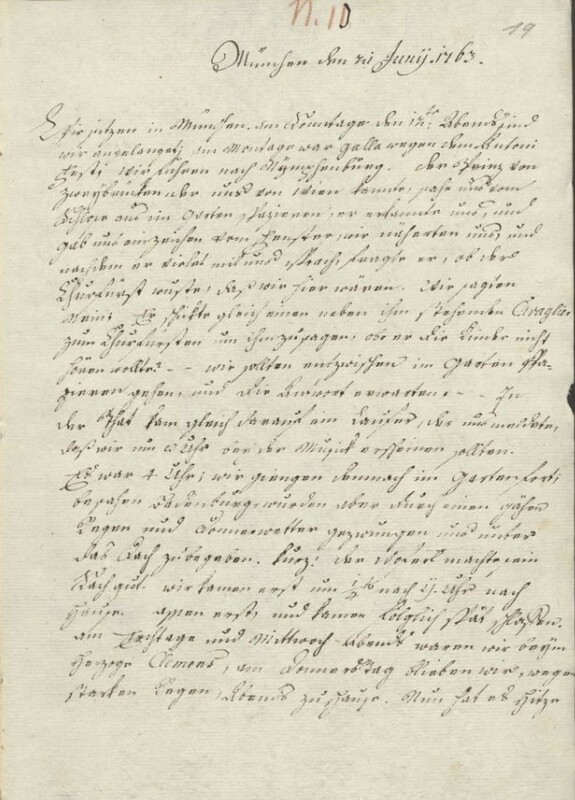 N. 10
19
München den 21 Junij. 1763.
Wir sitzen in München. am Sonntage den 12ten Abends sind
wir angelanget; am Montage war galla wegen dem Antoni
Fest; wir fuhren nach Nymphenburg. der Prinz von
Zweybrücken der uns von Wien kannte, sahe uns vom
Schlosse aus im Garten spazieren, er erkannte uns, und
gab uns ein zeichen vom Fenster, wir näherten uns, und
nachdem er vieles mit uns sprach, fragte er, ob der
Churfürst wuste, daß wir hier wären. Wir sagten
Nein: Er schickte gleich einen neben ihm stehenden Cavaglier
zum Churfürsten um ihm zusagen, ob er die Kinder nicht
hören wollte? – – wir sollten entzwischen im Garten spa-
zieren gehen, und die Antwort erwarten. – – In
der That kam gleich darauf ein Laufer, der uns meldete,
daß wir um 8 Uhr bey der Musick erscheinen sollten.
Es war 4 Uhr; wir giengen demnach im Garten fort;
besahen Badenburg, wurden aber durch einen gähen
Regen und Donnerwetter gezwungen uns unter
das Dach zubegeben. kurz: der Woferl machte sein
Sach gut. wir kamen erst um 1/4 nach 11. Uhr nach
Hause. assen erst, und kamen folglich spät schlaffen.
am Erchtage und Mittwoch abends waren wir beym
Herzoge Clemens, am Donnerstag blieben wir, wegen
starken Regen, Abends zu hause. Nun hat es Hitze